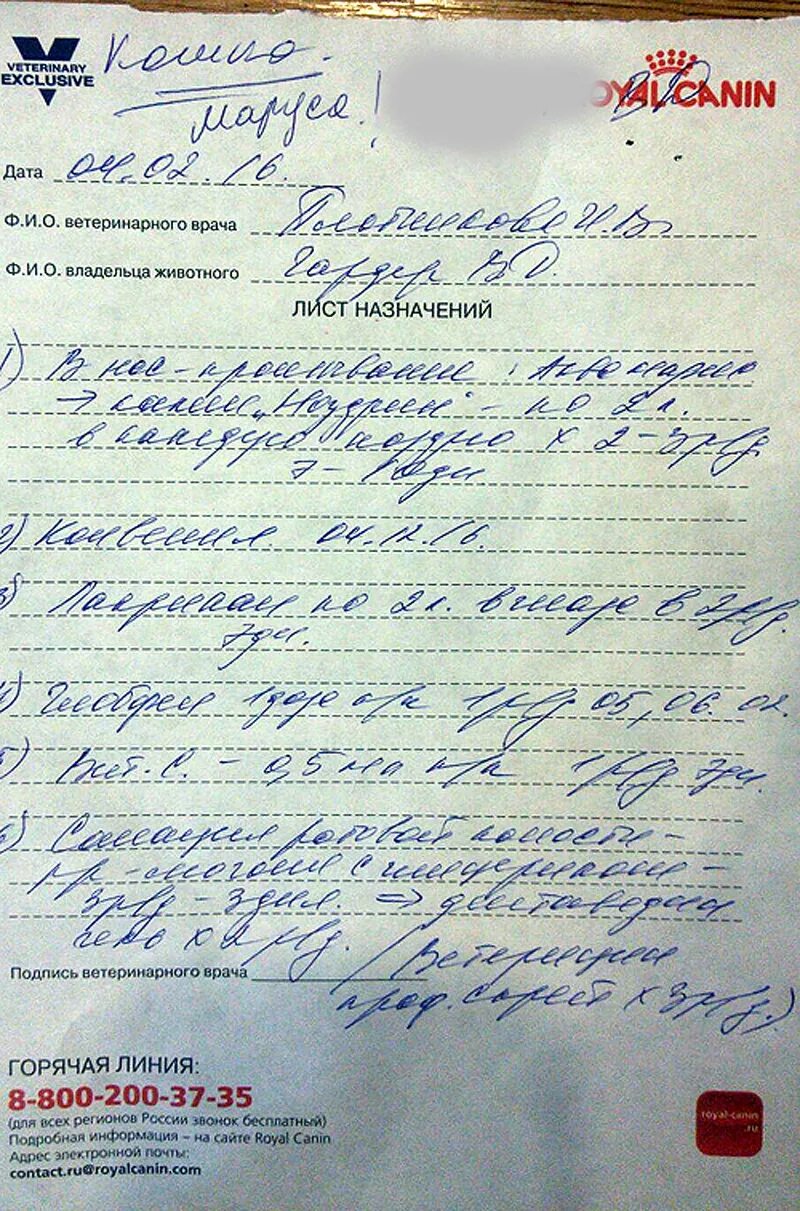 VETERINARY
EXCLUSIVE
Кошка
Маруся!
ROYAL CANIN
Дата 04.02.16.
Ф.И.О. ветеринарного врача Плотникова Н.В.
Ф.И.О. владельца животного Гардер В.О.
ЛИСТ НАЗНАЧЕНИЙ
1) В нос - промывание: Аквамарис
→ капли „Ноздрин" - по 2 к.
в каждую ноздрю х 2-3 р/д
7 - 10 дн
2) Конвения 04.02.16.
3) по 2 к. в глаза в 2 р/д.
7 дн.
4) Глобфел 1 доза п/к 1 р/д 05, 06. 02.
5) Вит. С. - 0,5 мл п/к 1 р/д 7 дн.
6) Санация ротовой полости -
р-р с
3 р/д - 3 дня. ⇒ дентаведин
гель х 2 р/д.
Подпись ветеринарного врача
проф. х 3 р/д.)
ГОРЯЧАЯ ЛИНИЯ:
8-800-200-37-35
(для всех регионов России звонок бесплатный)
Подробная информация – на сайте Royal Canin
Адрес электронной почты:
contact.ru@royalcanin.com
royal-canin
.ru